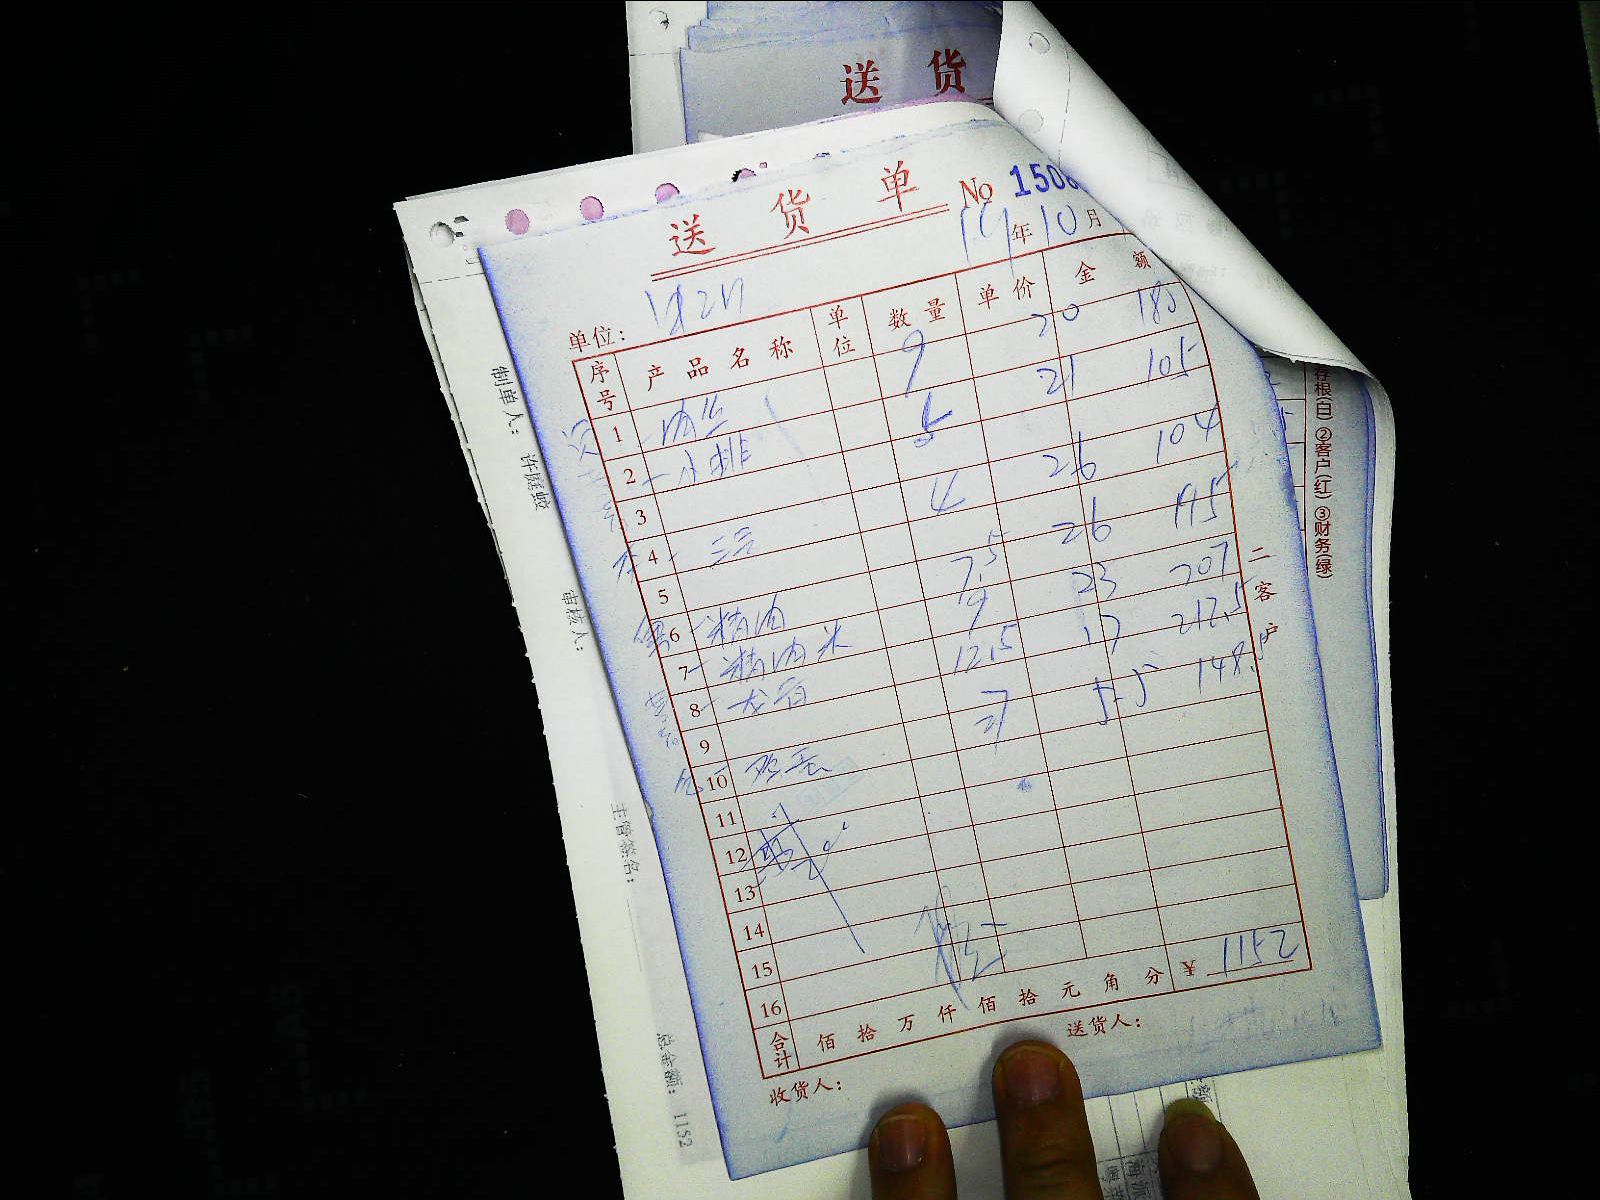 送 货
送 货 单 No 150
19年10月
单位：
序号 产品名称 单位 数量 单价 金额
1 肉丝 9 20 180
2 小排 5 21 105
3 4 26 104
4
5 7.5 26 195
6 精肉 9 23 207
7 精肉米 12.5 17 212.5
8 龙骨 27 5.5 148.5
9
10 鸡蛋
11
12
13
14
15
16
合计 佰 拾 万 仟 佰 拾 元 角 分 ¥ 1152
送货人：
收货人：
二 客户
存根(白) ②客户(红) ③财务(绿)
制单人： 许庭蛟
审核人：
主管签名：
总金额： 1152